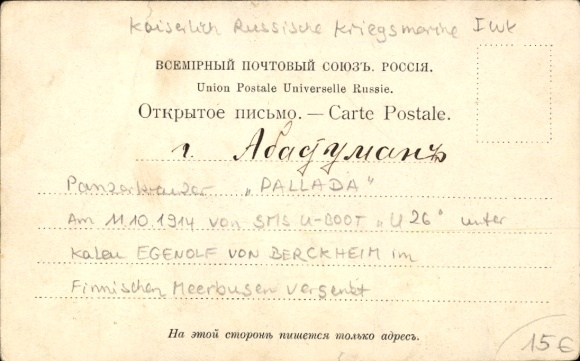 Kaiserlich Russische Kriegsmarine I WK
ВСЕМІРНЫЙ ПОЧТОВЫЙ СОЮЗЪ. РОССІЯ.
Union Postale Universelle Russie.
Открытое письмо. — Carte Postale.
г. Абастуманъ
Panzerkreuzer "PALLADA"
Am 11.10.1914 von SMS U-BOOT "U 26" unter
Kaleu EGENOLF VON BERCKHEIM im
Finnischen Meerbusen versenkt
На этой сторонѣ пишется только адресъ.
15€